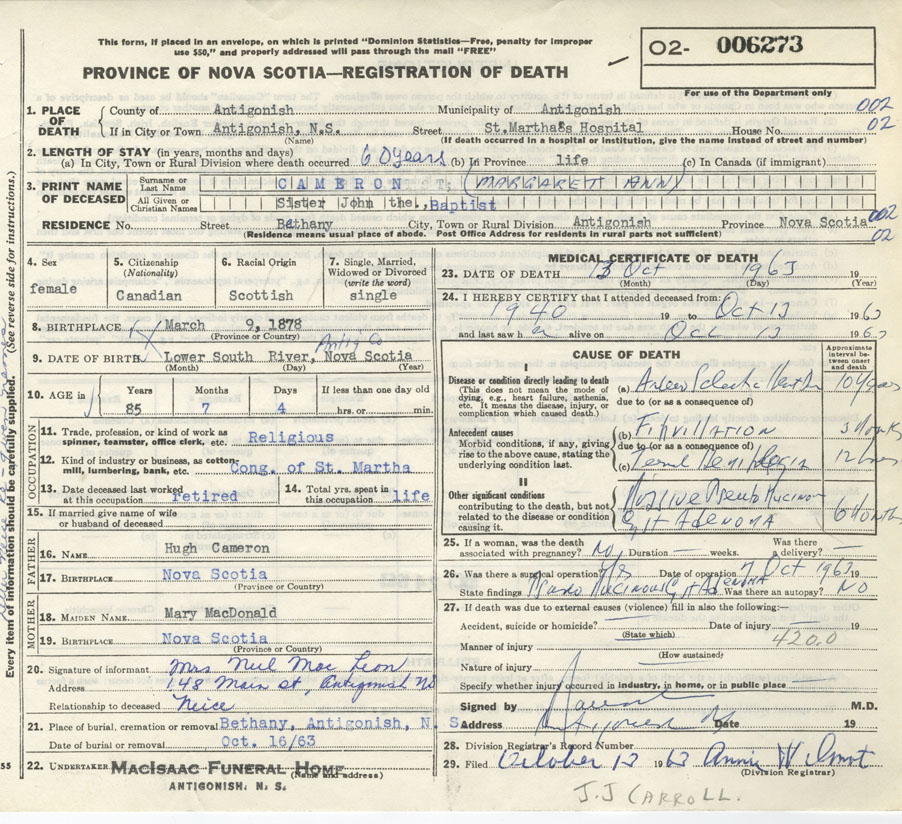 This form, if placed in an envelope, on which is printed "Dominion Statistics—Free, penalty for improper
use $50," and properly addressed will pass through the mail "FREE"
O2- 006273
PROVINCE OF NOVA SCOTIA—REGISTRATION OF DEATH
For use of the Department only
1. PLACE OF DEATH County of Antigonish Municipality of Antigonish 002
If in City or Town Antigonish, N.S. Street St.Martha's Hospital House No. 02
(Name) (If death occurred in a hospital or institution, give the name instead of street and number)
2. LENGTH OF STAY (in years, months and days)
(a) In City, Town or Rural Division where death occurred 60 years (b) In Province life (c) In Canada (if immigrant)
3. PRINT NAME OF DECEASED Surname or Last Name CAMERON (MARGARET ANN)
All Given or Christian Names Sister John the Baptist
RESIDENCE No. Street Bethany City, Town or Rural Division Antigonish Province Nova Scotia 002
(Residence means usual place of abode. Post Office Address for residents in rural parts not sufficient) 02
4. Sex female
5. Citizenship (Nationality) Canadian
6. Racial Origin Scottish
7. Single, Married, Widowed or Divorced (write the word) single
8. BIRTHPLACE March 9, 1878
(Province or Country)
9. DATE OF BIRTH Lower South River, Antig Co Nova Scotia
(Month) (Day) (Year)
10. AGE in Years Months Days If less than one day old
85 7 4 hrs. or min.
OCCUPATION
11. Trade, profession, or kind of work as spinner, teamster, office clerk, etc. Religious
12. Kind of industry or business, as cotton-mill, lumbering, bank, etc. Cong. of St. Martha
13. Date deceased last worked at this occupation retired
14. Total yrs. spent in this occupation life
15. If married give name of wife or husband of deceased
FATHER
16. NAME Hugh Cameron
17. BIRTHPLACE Nova Scotia
(Province or Country)
MOTHER
18. MAIDEN NAME Mary MacDonald
19. BIRTHPLACE Nova Scotia
(Province or Country)
20. Signature of informant Mrs Neil Mac Lean
Address 148 Main st, Antigonish NS
Relationship to deceased Neice
21. Place of burial, cremation or removal Bethany, Antigonish, N. S.
Date of burial or removal Oct. 16/63
22. UNDERTAKER MACISAAC FUNERAL HOME
(Name and address)
ANTIGONISH, N. S.
55
Every item of information should be carefully supplied. (See reverse side for instructions.)
MEDICAL CERTIFICATE OF DEATH
23. DATE OF DEATH 13 Oct 1963 19
(Month) (Day) (Year)
24. I HEREBY CERTIFY that I attended deceased from:
1940 19 to Oct 13 1963
and last saw her alive on Oct 13 1963
CAUSE OF DEATH
Approximate interval between onset and death
I
Disease or condition directly leading to death
(This does not mean the mode of dying, e.g., heart failure, asthenia, etc. It means the disease, injury, or complication which caused death.)
(a) 10 Years
due to (or as a consequence of)
Antecedent causes
Morbid conditions, if any, giving rise to the above cause, stating the underlying condition last.
(b) Fibrillation 3
due to (or as a consequence of)
(c) 12
II
Other significant conditions
contributing to the death, but not related to the disease or condition causing it.
Massive Pseudo Mucinous
Cyst Adenoma 6 Months
25. If a woman, was the death associated with pregnancy? No Duration — weeks. Was there a delivery? —
26. Was there a surgical operation? Yes Date of operation 7 Oct 1963 19
State findings Pseudo Mucinous Cyst Adenoma Was there an autopsy? NO
27. If death was due to external causes (violence) fill in also the following:—
Accident, suicide or homicide? Date of injury — 19
(State which)
Manner of injury 420.0
(How sustained)
Nature of injury
Specify whether injury occurred in industry, in home, or in public place
Signed by M.D.
Address Antigonish Date 19
28. Division Registrar's Record Number
29. Filed October 13 1963
(Division Registrar)
J.J CARROLL.